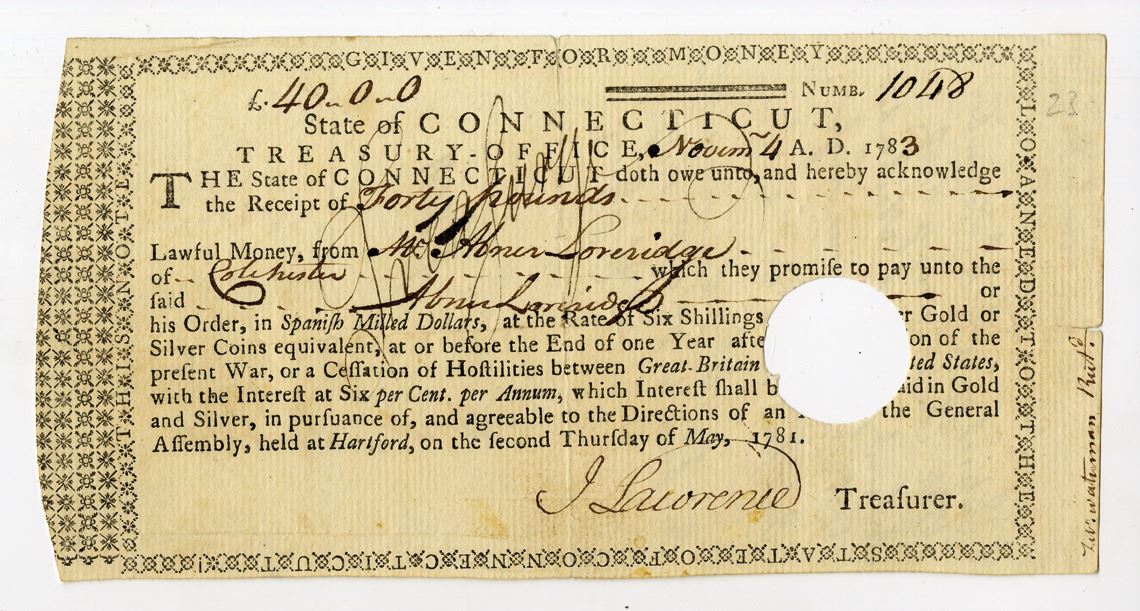 THIS NOTE
GIVEN FOR MONEY
LOANED TO THE
STATE OF CONNECTICUT!
£. 40 " 0 " 0 NUMB. 1048
23
State of CONNECTICUT,
TREASURY-OFFICE, Novemr 4 A. D. 1783
THE State of CONNECTICUT doth owe unto, and hereby acknowledge
the Receipt of Forty pounds
Lawful Money, from Mr Abner Loveridge
of Colchester which they promiſe to pay unto the
ſaid Abner Loveridge or
his Order, in Spaniſh Milled Dollars, at the Rate of Six Shillings er Gold or
Silver Coins equivalent, at or before the End of one Year afte on of the
preſent War, or a Ceſſation of Hoſtilities between Great-Britain ted States,
with the Intereſt at Six per Cent. per Annum, which Intereſt ſhall b aid in Gold
and Silver, in purſuance of, and agreeable to the Directions of an the General
Aſſembly, held at Hartford, on the ſecond Thurſday of May, 1781.
J Lawrence Treaſurer.
waterman